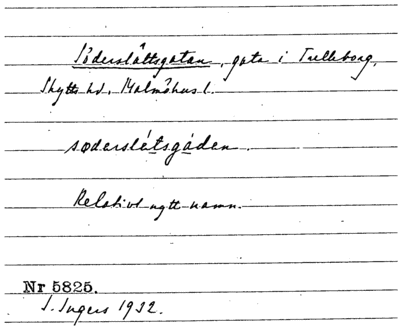 Söderslättsgatan, gata i Trelleborg,
Skytts hd, Malmöhus l.
søderslátsgádan.
Relativt nytt namn.
Nr 5825.
I. Ingers 1932.